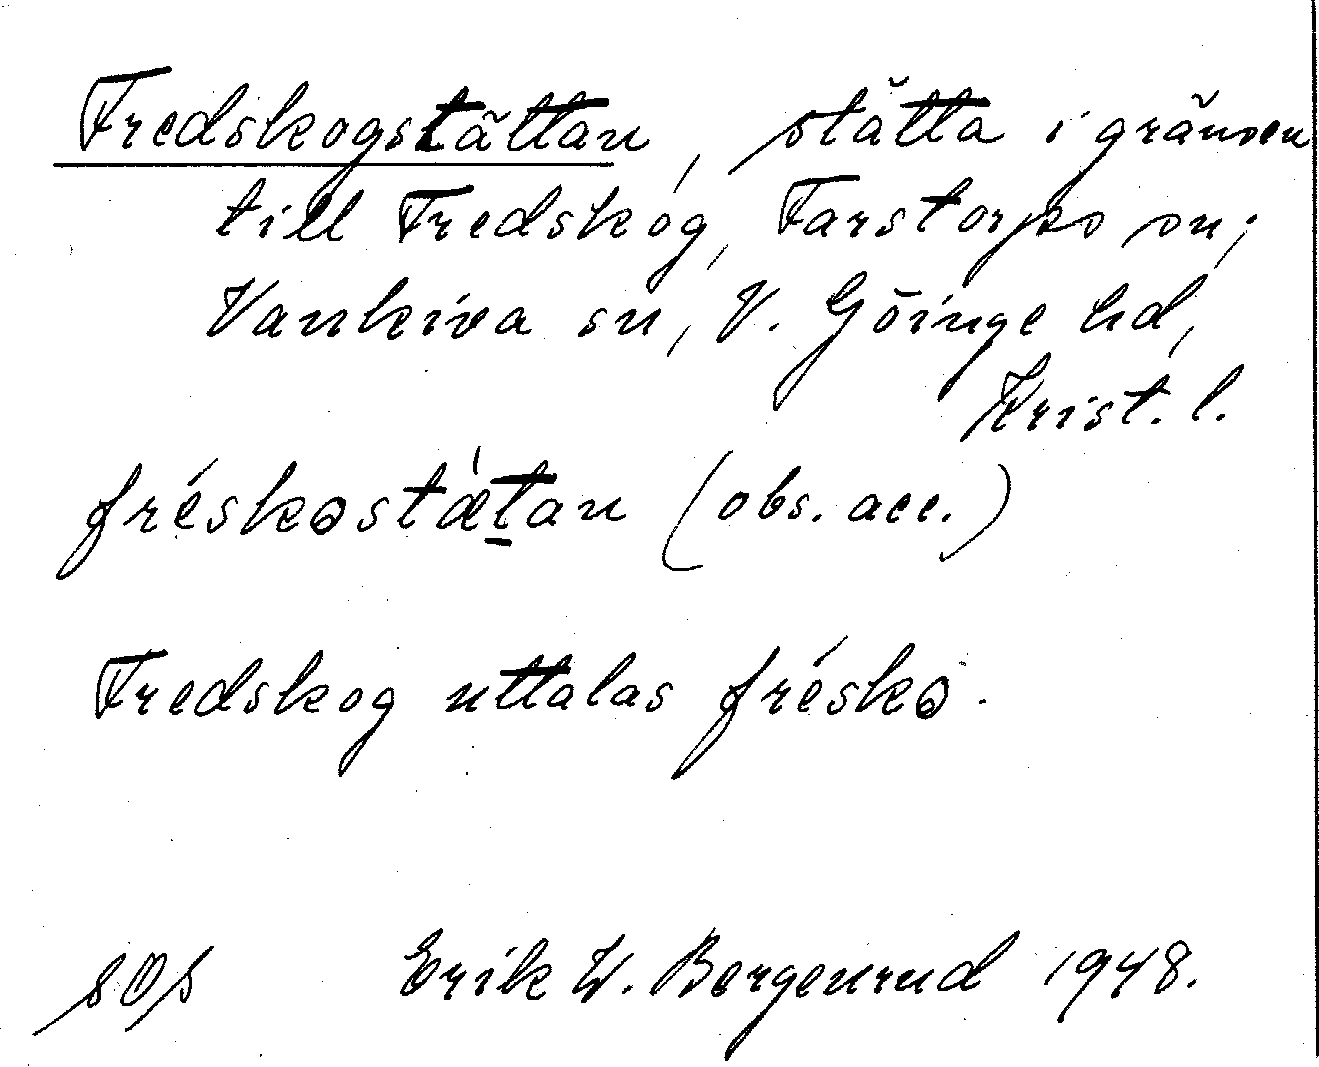 Fredskogstättan, stätta i gränsen
till Fredskog, Farstorps sn;
Vankiva sn, V. Göinge hd,
Krist. l.
fréskəstǽt̠an (obs. acc.)
Fredskog uttalas fréskə.
Erik W. Bergenrud 1948.